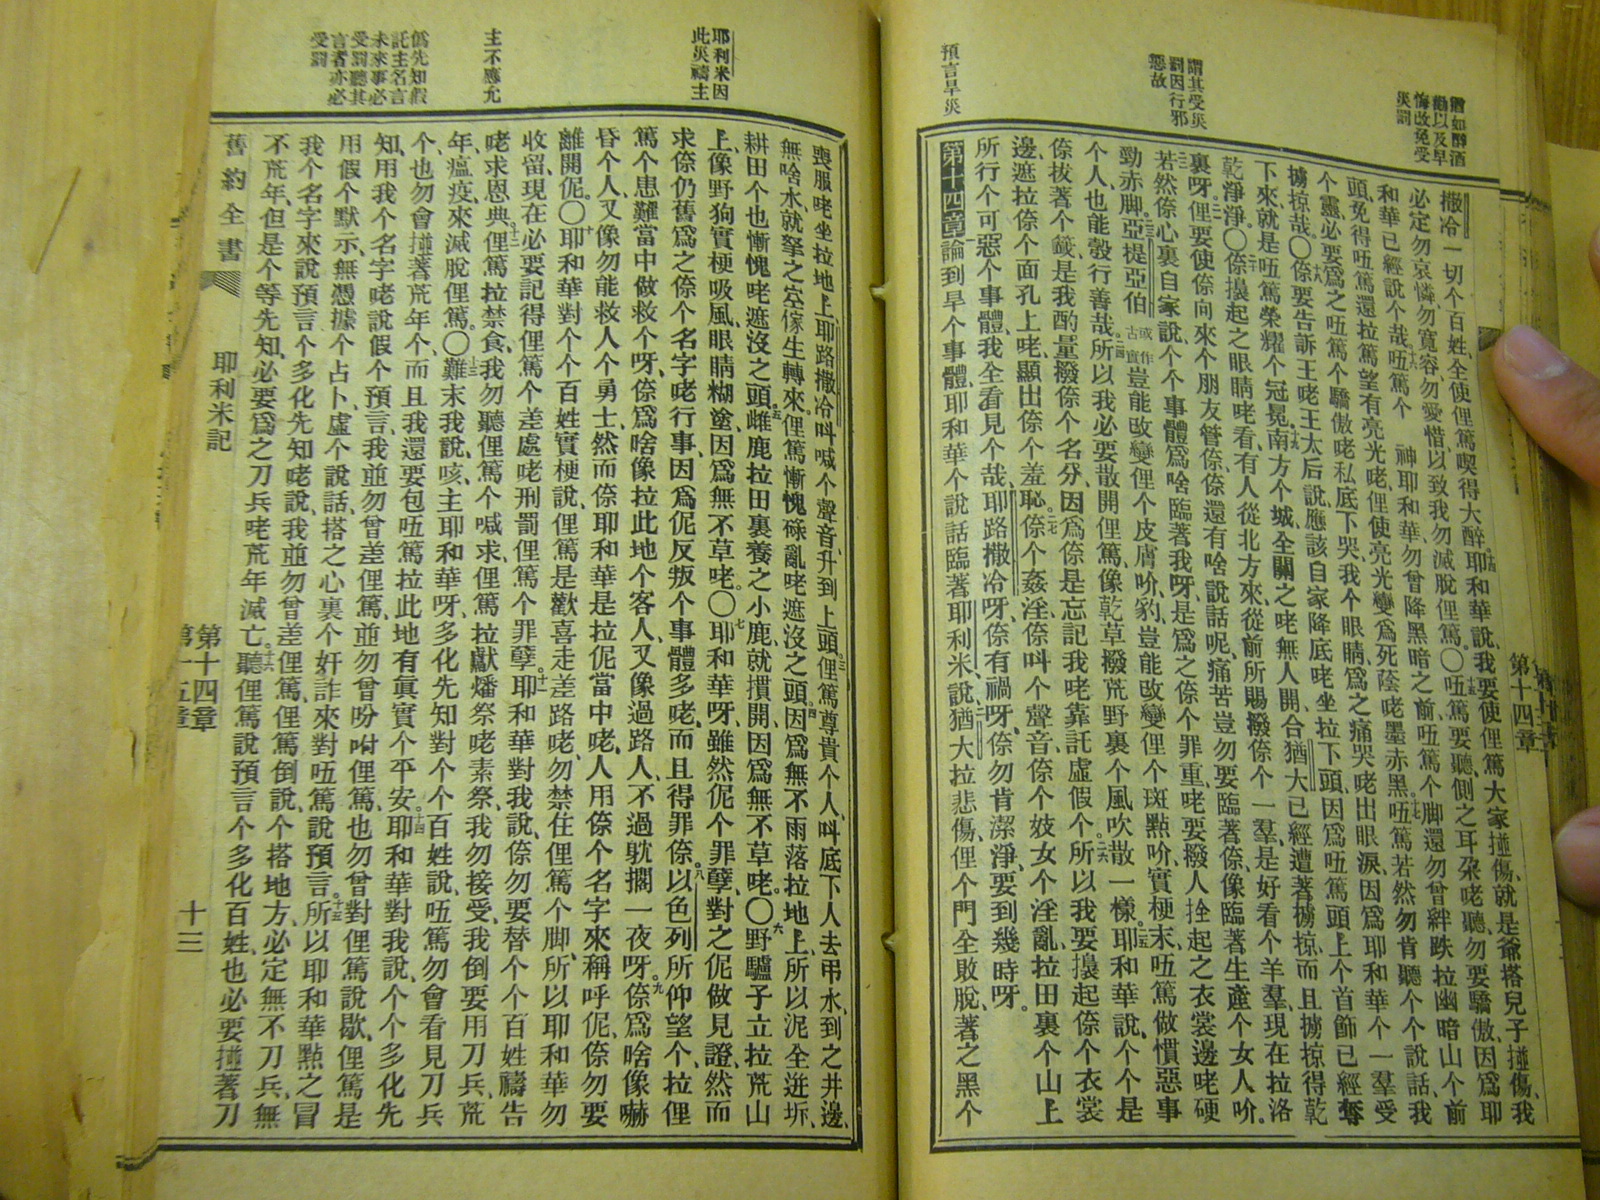 譬如醉酒
勸以及早
悔改免受
災罰
謂其受災
罰因行邪
惡故
預言旱災
撒冷一切个百姓、全使俚篤喫得大醉、耶和華說、我要使俚篤大家搕傷、就是爺搭兒子搕傷、我
必定勿哀憐、勿寬容、勿愛惜、以致我勿滅脫俚篤。〇十五唔篤要聽、側之耳朶咾聽、勿要驕傲、因爲耶
和華已經說个哉。十六唔篤个 神耶和華、勿曾降黑暗之前、唔篤个脚還勿曾絆跌拉幽暗山个前
頭、免得唔篤還拉篤望有亮光咾、俚使亮光變爲死蔭咾墨赤黑。十七唔篤若然勿肯聽个个說話、我
个靈必要爲之唔篤个驕傲咾私底下哭、我个眼睛、爲之痛哭咾出眼淚、因爲耶和華个一羣受
擄掠哉。〇十八㑚要告訴王咾王太后說、應該自家降底咾坐拉下頭、因爲唔篤頭上个首飾已經奪
下來、就是唔篤榮耀个冠冕。十九南方个城、全關之咾無人開、合猶大已經遭著擄掠、而且擄掠得乾
乾淨淨。〇二十㑚擡起之眼睛咾看有人從北方來、從前所賜撥㑚个一羣、是好看个羊羣、現在拉洛
裏呀。二一俚要使㑚向來个朋友管㑚、㑚還有啥說話呢、痛苦豈勿要臨著㑚、像臨著生產个女人吤。
二二若然㑚心裏自家說、个个事體爲啥臨著我呀、是爲之㑚个罪重咾、要撥人拴起之衣裳邊咾硬
勁赤脚。二三亞提亞伯或作古實豈能改變俚个皮膚吤、豹豈能改變俚个斑點吤、實梗末、唔篤做慣惡事
个人、也能彀行善哉。二四所以我必要散開俚篤、像乾草撥荒野裏个風吹散一樣。二五耶和華說、个个是
㑚拔著个籤、是我酌量撥㑚个名分、因爲㑚是忘記我咾靠託虛假个。二六所以我要擡起㑚个衣裳
邊、遮拉㑚个面孔上咾、顯出㑚个羞恥。二七㑚个姦淫、㑚叫个聲音、㑚个妓女个淫亂、拉田裏个山上
所行个可惡个事體、我全看見个哉、耶路撒冷呀、㑚有禍呀、㑚勿肯潔淨、要到幾時呀。
第十四章論到旱个事體、耶和華个說話臨著耶利米、說、二猶大拉悲傷、俚个門全敗脫、著之黑个
第十四章
耶利米因
此災禱主
主不應允
僞先知假
託主名言
未來事必
受罰聽其
言者亦必
受罰
喪服咾坐拉地上、耶路撒冷叫喊个聲音、升到上頭。三俚篤尊貴个人、叫底下人去弔水、到之井邊、
無啥水、就拏之空傢生轉來。俚篤慚愧碌亂咾遮沒之頭。四因爲無不雨落拉地上、所以泥全迸坼、
耕田个也慚愧咾遮沒之頭。五雌鹿拉田裏養之小鹿、就摜開、因爲無不草咾。〇六野驢子立拉荒山
上、像野狗實梗吸風、眼睛糊塗、因爲無不草咾。〇七耶和華呀、雖然伲个罪孽、對之伲做見證、然而
求㑚仍舊爲之㑚个名字咾行事、因爲伲反叛个事體多咾、而且得罪㑚。八以色列所仰望个、拉俚
篤个患難當中做救个呀、㑚爲啥像拉此地个客人、又像過路人、不過躭擱一夜呀。九㑚爲啥像嚇
昏个人、又像勿能救人个勇士、然而㑚耶和華是拉伲當中咾、人用㑚个名字來稱呼伲、㑚勿要
離開伲。〇十耶和華對个个百姓實梗說、俚篤是歡喜走差路咾、勿禁住俚篤个脚、所以耶和華勿
收留、現在必要記得俚篤个差處咾刑罰俚篤个罪孽。十一耶和華對我說、㑚勿要替个个百姓禱告
咾求恩典。十二俚篤拉禁食、我勿聽俚篤个喊求、俚篤拉獻燔祭咾素祭、我勿接受、我倒要用刀兵、荒
年、瘟疫、來滅脫俚篤。〇十三難末我說、咳、主耶和華呀、多化先知對个个百姓說、唔篤勿會看見刀兵
个、也勿會搕著荒年个、而且我還要包唔篤拉此地有眞實个平安。十四耶和華對我說、个个多化先
知、用我个名字咾說假个預言、我並勿曾差俚篤、並勿曾吩咐俚篤、也勿曾對俚篤說歇、俚篤是
用假个默示、無憑據个占卜、虛个說話、搭之心裏个奸詐、來對唔篤說預言。十五所以耶和華點之冒
我个名字來說預言个多化先知咾說、我並勿曾差俚篤、俚篤倒說、个搭地方、必定無不刀兵、無
不荒年、但是个等先知、必要爲之刀兵咾荒年滅亡。十六聽俚篤說預言个多化百姓、也必要搕著刀
舊約全書
耶利米記
第十四章
第十五章
十三